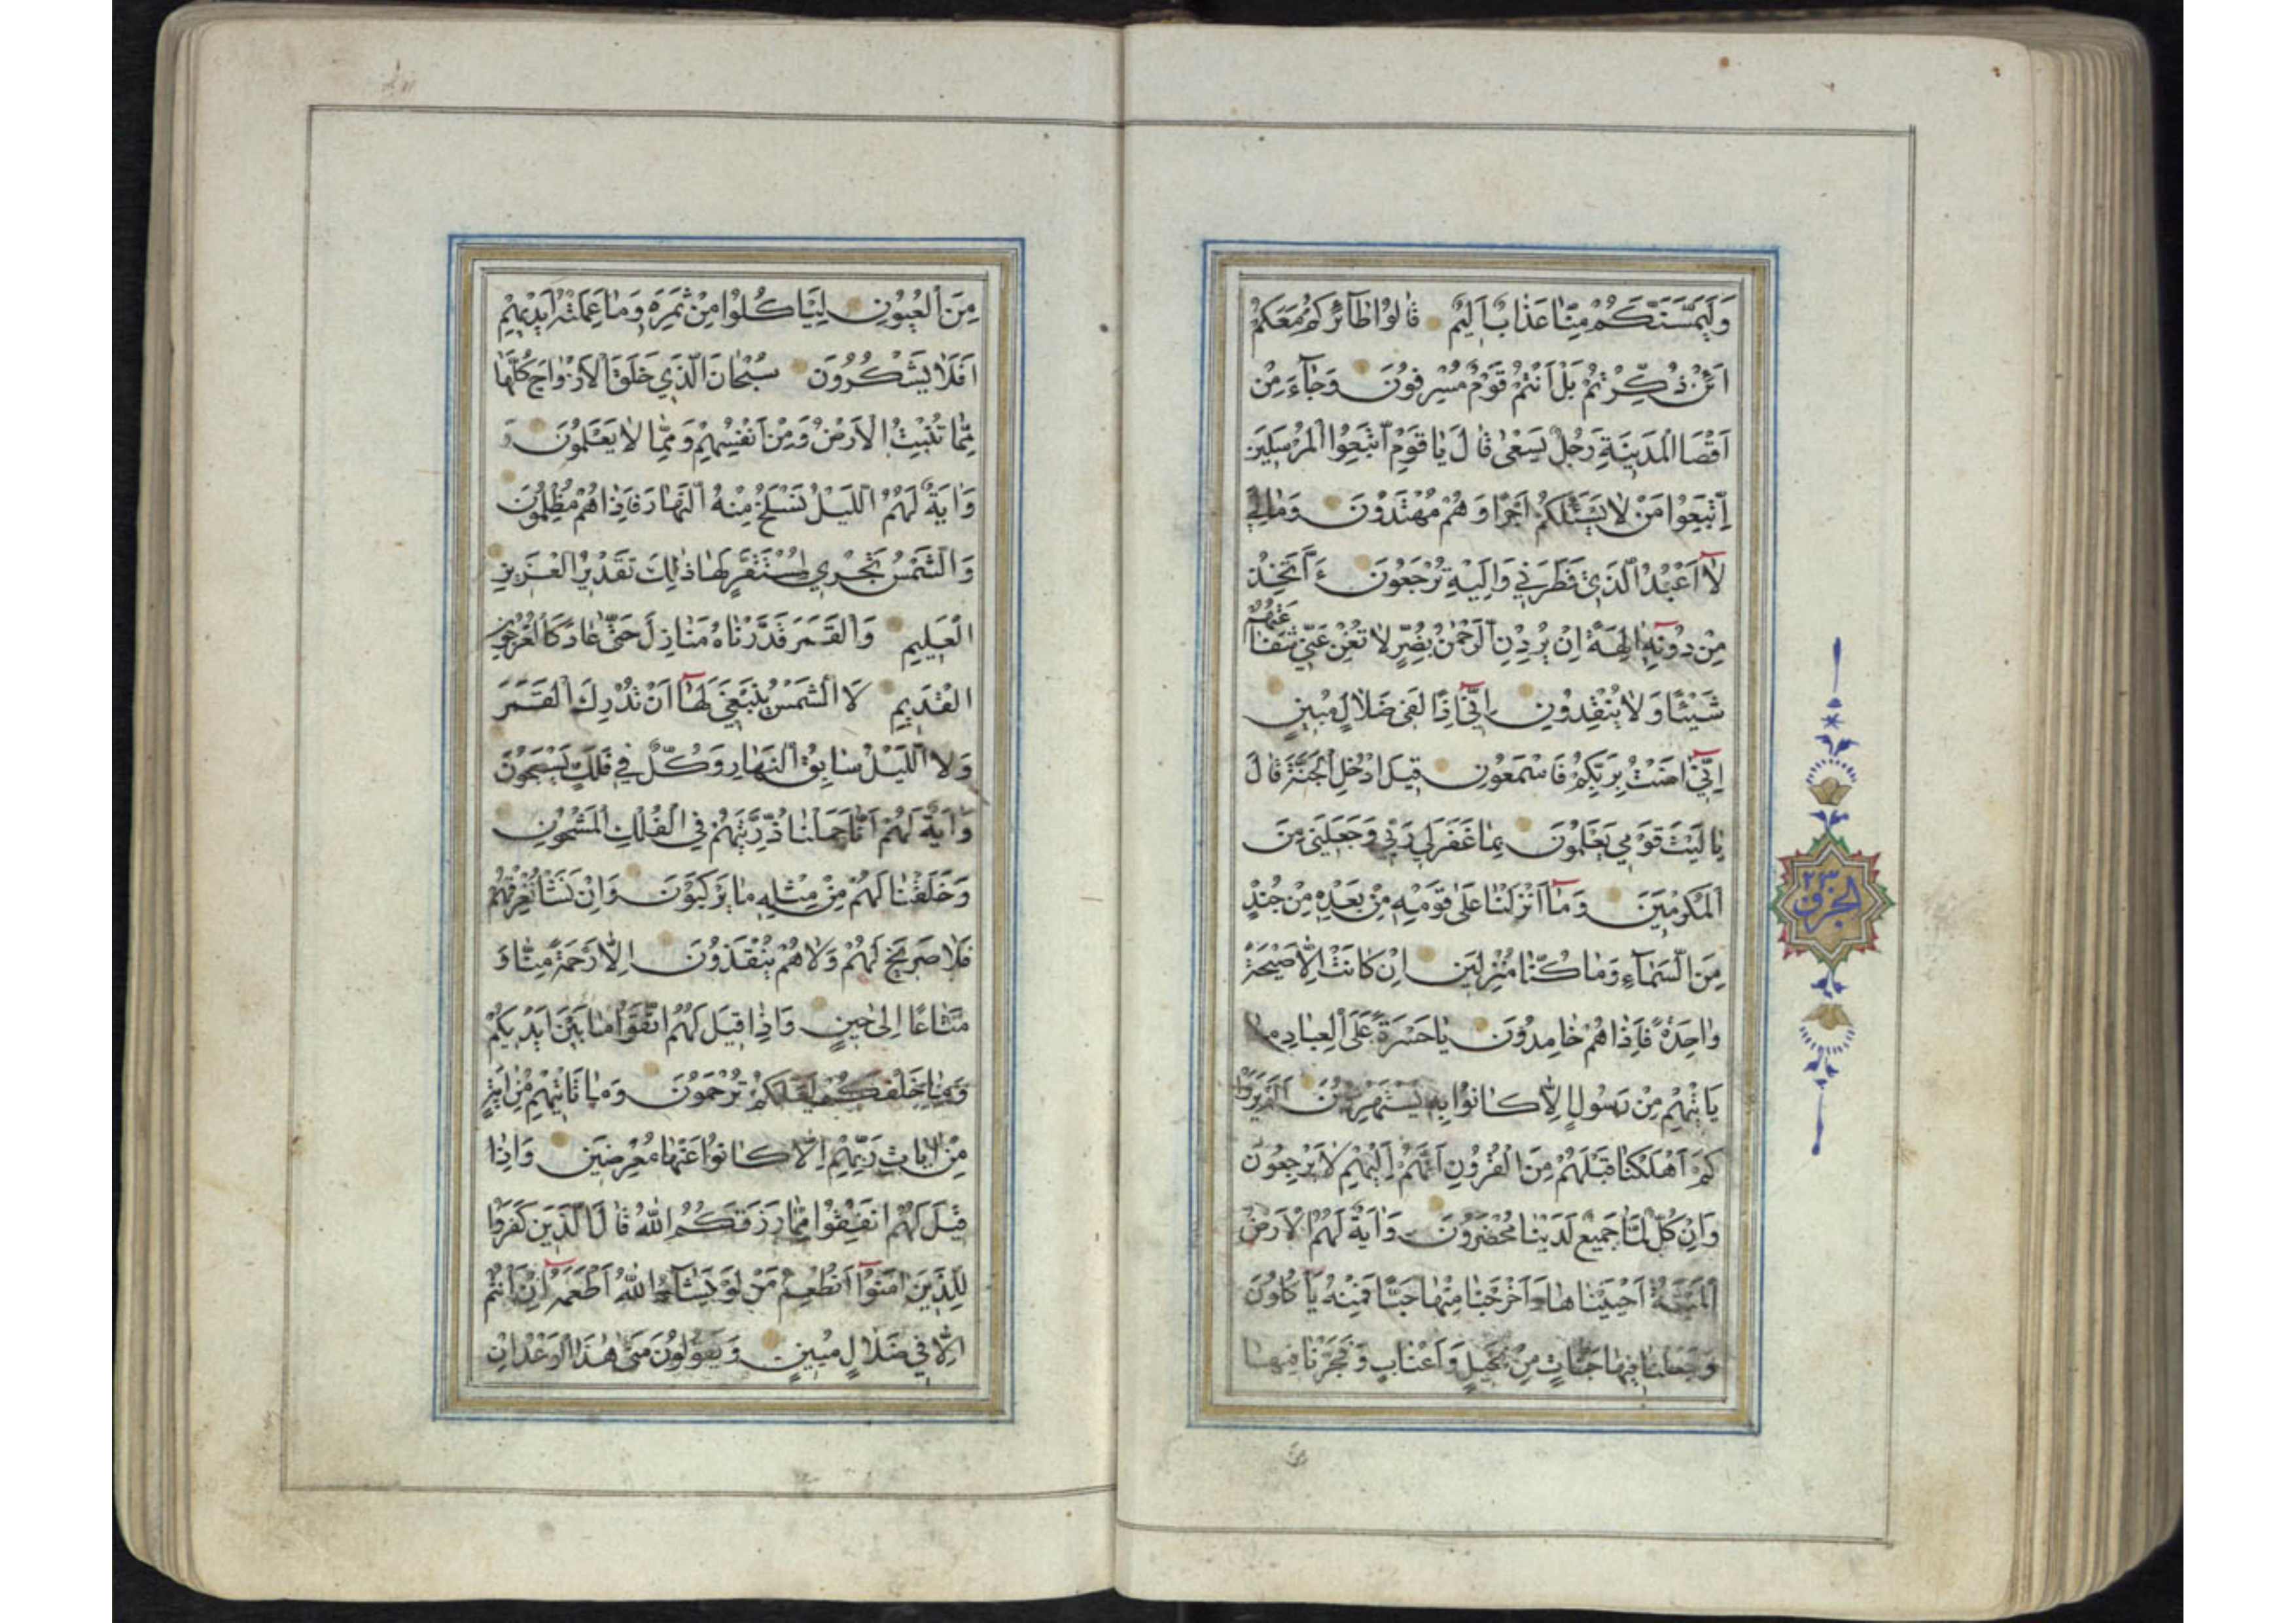 وَلَيَمَسَّنَّكُمْ مِنَّا عَذَابٌ اَلِيمٌ قَالُوا طَآئِرُكُمْ مَعَكُمْ
اَئِنْ ذُكِّرْتُمْ بَلْ اَنْتُمْ قَوْمٌ مُسْرِفُونَ وَجَآءَ مِنْ
اَقْصَا الْمَدِينَةِ رَجُلٌ يَسْعٰى قَالَ يَا قَوْمِ اتَّبِعُوا الْمُرْسَلِينَ
اِتَّبِعُوا مَنْ لَا يَسْئَلُكُمْ اَجْرًا وَهُمْ مُهْتَدُونَ وَمَالِيَ
لَآ اَعْبُدُ الَّذِي فَطَرَنِي وَاِلَيْهِ تُرْجَعُونَ ءَاَتَّخِذُ
مِنْ دُونِهِٓ اٰلِهَةً اِنْ يُرِدْنِ الرَّحْمٰنُ بِضُرٍّ لَا تُغْنِ عَنِّي شَفَاعَتُهُمْ
شَيْئًا وَلَا يُنْقِذُونِ اِنِّٓي اِذًا لَفِي ضَلَالٍ مُبِينٍ
اِنِّٓي اٰمَنْتُ بِرَبِّكُمْ فَاسْمَعُونِ قِيلَ ادْخُلِ الْجَنَّةَ قَالَ
يَا لَيْتَ قَوْمِي يَعْلَمُونَ بِمَا غَفَرَ لِي رَبِّي وَجَعَلَنِي مِنَ
الْمُكْرَمِينَ وَمَآ اَنْزَلْنَا عَلٰى قَوْمِهِ مِنْ بَعْدِهِ مِنْ جُنْدٍ
مِنَ السَّمَآءِ وَمَا كُنَّا مُنْزِلِينَ اِنْ كَانَتْ اِلَّا صَيْحَةً
وَاحِدَةً فَاِذَا هُمْ خَامِدُونَ يَا حَسْرَةً عَلَى الْعِبَادِ مَا
يَاْتِيهِمْ مِنْ رَسُولٍ اِلَّا كَانُوا بِهِ يَسْتَهْزِؤُنَ اَلَمْ يَرَوْا
كَمْ اَهْلَكْنَا قَبْلَهُمْ مِنَ الْقُرُونِ اَنَّهُمْ اِلَيْهِمْ لَا يَرْجِعُونَ
وَاِنْ كُلٌّ لَمَّا جَمِيعٌ لَدَيْنَا مُحْضَرُونَ وَاٰيَةٌ لَهُمُ الْاَرْضُ
الْمَيْتَةُ اَحْيَيْنَاهَا وَاَخْرَجْنَا مِنْهَا حَبًّا فَمِنْهُ يَاْكُلُونَ
وَجَعَلْنَا فِيهَا جَنَّاتٍ مِنْ نَخِيلٍ وَاَعْنَابٍ وَفَجَّرْنَا فِيهَا
مِنَ الْعُيُونِ لِيَاْكُلُوا مِنْ ثَمَرِهِ وَمَا عَمِلَتْهُ اَيْدِيهِمْ
اَفَلَا يَشْكُرُونَ سُبْحَانَ الَّذِي خَلَقَ الْاَزْوَاجَ كُلَّهَا
مِمَّا تُنْبِتُ الْاَرْضُ وَمِنْ اَنْفُسِهِمْ وَمِمَّا لَا يَعْلَمُونَ وَ
وَاٰيَةٌ لَهُمُ اللَّيْلُ نَسْلَخُ مِنْهُ النَّهَارَ فَاِذَا هُمْ مُظْلِمُونَ
وَالشَّمْسُ تَجْرِي لِمُسْتَقَرٍّ لَهَا ذٰلِكَ تَقْدِيرُ الْعَزِيزِ
الْعَلِيمِ وَالْقَمَرَ قَدَّرْنَاهُ مَنَازِلَ حَتّٰى عَادَ كَالْعُرْجُونِ
الْقَدِيمِ لَا الشَّمْسُ يَنْبَغِي لَهَآ اَنْ تُدْرِكَ الْقَمَرَ
وَلَا اللَّيْلُ سَابِقُ النَّهَارِ وَكُلٌّ فِي فَلَكٍ يَسْبَحُونَ
وَاٰيَةٌ لَهُمْ اَنَّا حَمَلْنَا ذُرِّيَّتَهُمْ فِي الْفُلْكِ الْمَشْحُونِ
وَخَلَقْنَا لَهُمْ مِنْ مِثْلِهِ مَا يَرْكَبُونَ وَاِنْ نَشَاْ نُغْرِقْهُمْ
فَلَا صَرِيخَ لَهُمْ وَلَا هُمْ يُنْقَذُونَ اِلَّا رَحْمَةً مِنَّا وَ
مَتَاعًا اِلٰى حِينٍ وَاِذَا قِيلَ لَهُمُ اتَّقُوا مَا بَيْنَ اَيْدِيكُمْ
وَمَا خَلْفَكُمْ لَعَلَّكُمْ تُرْحَمُونَ وَمَا تَاْتِيهِمْ مِنْ اٰيَةٍ
مِنْ اٰيَاتِ رَبِّهِمْ اِلَّا كَانُوا عَنْهَا مُعْرِضِينَ وَاِذَا
قِيلَ لَهُمْ اَنْفِقُوا مِمَّا رَزَقَكُمُ اللّٰهُ قَالَ الَّذِينَ كَفَرُوا
لِلَّذِينَ اٰمَنُوٓا اَنُطْعِمُ مَنْ لَوْ يَشَآءُ اللّٰهُ اَطْعَمَهُٓ اِنْ اَنْتُمْ
اِلَّا فِي ضَلَالٍ مُبِينٍ وَيَقُولُونَ مَتٰى هٰذَا الْوَعْدُ اِنْ